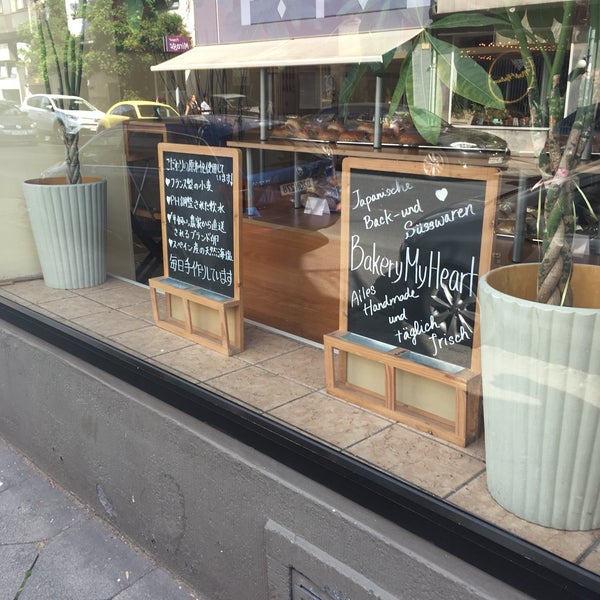 こだわりの原材料使用して
います!
♥フランス製の小麦
♥PH調整された軟水
されるブランド卵
♥スペイン産の天然海塩
毎日手作りしています
Japanische
Back-und
Süsswaren
BakeryMyHeart
Ailes
Handmade
und
täglich
frisch